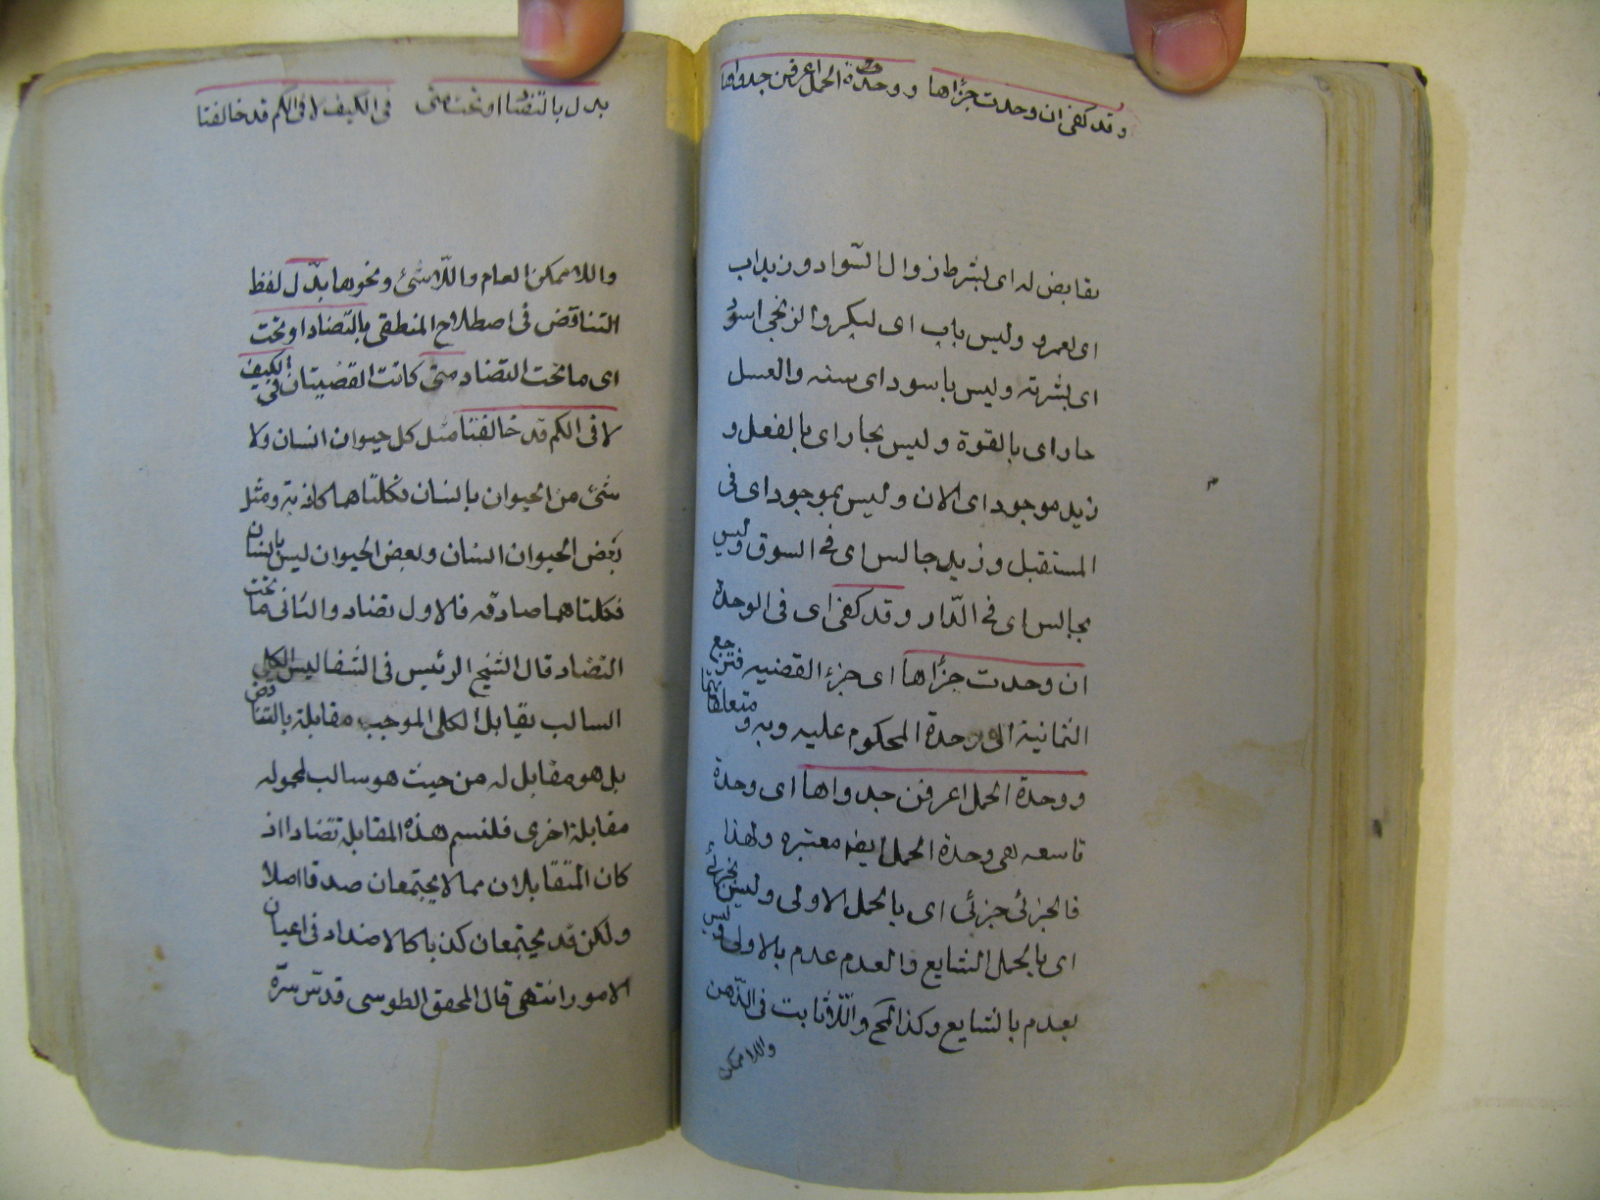 وقد كفى ان وحدت جزاها ووحدة الحمل اعرفن جدواها
بقابض له اى بشرط زوال السّواد وزيد اب
اى لعمرو وليس باب اى لبكر والزنجى اسود
اى بشرته وليس باسود اى سنه والعسل
حار اى بالقوة وليس بحار اى بالفعل و
زيد موجود اى الان وليس بموجود اى فى
المستقبل وزيد جالس اى فى السوق وليس
بجالس اى فى الدّار وقد كفى اى فى الوحدة
ان وحدت جزاها اى جزء القضيه فترجع
الثمانية الى وحدة المحكوم عليه وبه و متعلقاتهما
ووحدة الحمل اعرفن جدواها اى وحدة
تاسعه هى وحدة الحمل ايضا معتبره ولهذا
فالجزئى جزئى اى بالحمل الاولى وليس بجزئى
اى بالحمل الشايع والعدم عدم بالاولى وليس
بعدم بالشايع وكذا المح واللّاثابت فى الذّهن
واللاممكن
بدل بالتضاد او تحت متى فى الكيف لا فى الكم قد خالفتا
واللاممكن العام واللّاشئ ونحوها بدّل لفظ
التناقض فى اصطلاح المنطقى بالتضاد او تحت
اى ما تحت التضاد متى كانت القضيتان فى الكيف
لا فى الكم قد خالفتا مثل كل حيوان انسان ولا
شئ من الحيوان بانسان فكلتاهما كاذبة ومثل
بعض الحيوان انسان وبعض الحيوان ليس بانسان
فكلتاهما صادقه فالاول تضاد والثانى ما تحت
التضاد قال الشيخ الرئيس فى الشفا ليس الكلى
السالب يقابل الكلى الموجب مقابلة بالتناقض
بل هو مقابل له من حيث هو سالب لمحموله
مقابلة اخرى فلنسم هذه المقابلة تضادا اذ
كان المتقابلان مما لا يجتمعان صدقا اصلا
ولكن قد يجتمعان كذبا كالاضداد فى اعيان
الامور انتهى قال المحقق الطوسى قدّس سرّه